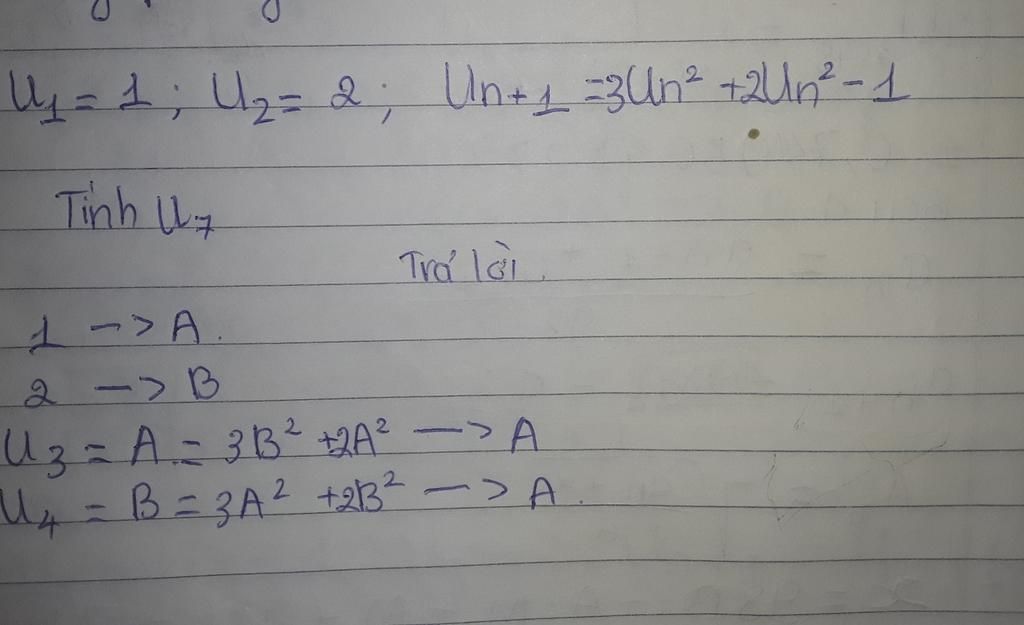 U₁ = 1 ; U₂ = 2 ; Un+1 = 3Un² + 2Un² - 1
Tính U₇
Trả lời.
1 —> A.
2 —> B
U₃ = A = 3B² + 2A² —> A
U₄ = B = 3A² + 2B² —> A.